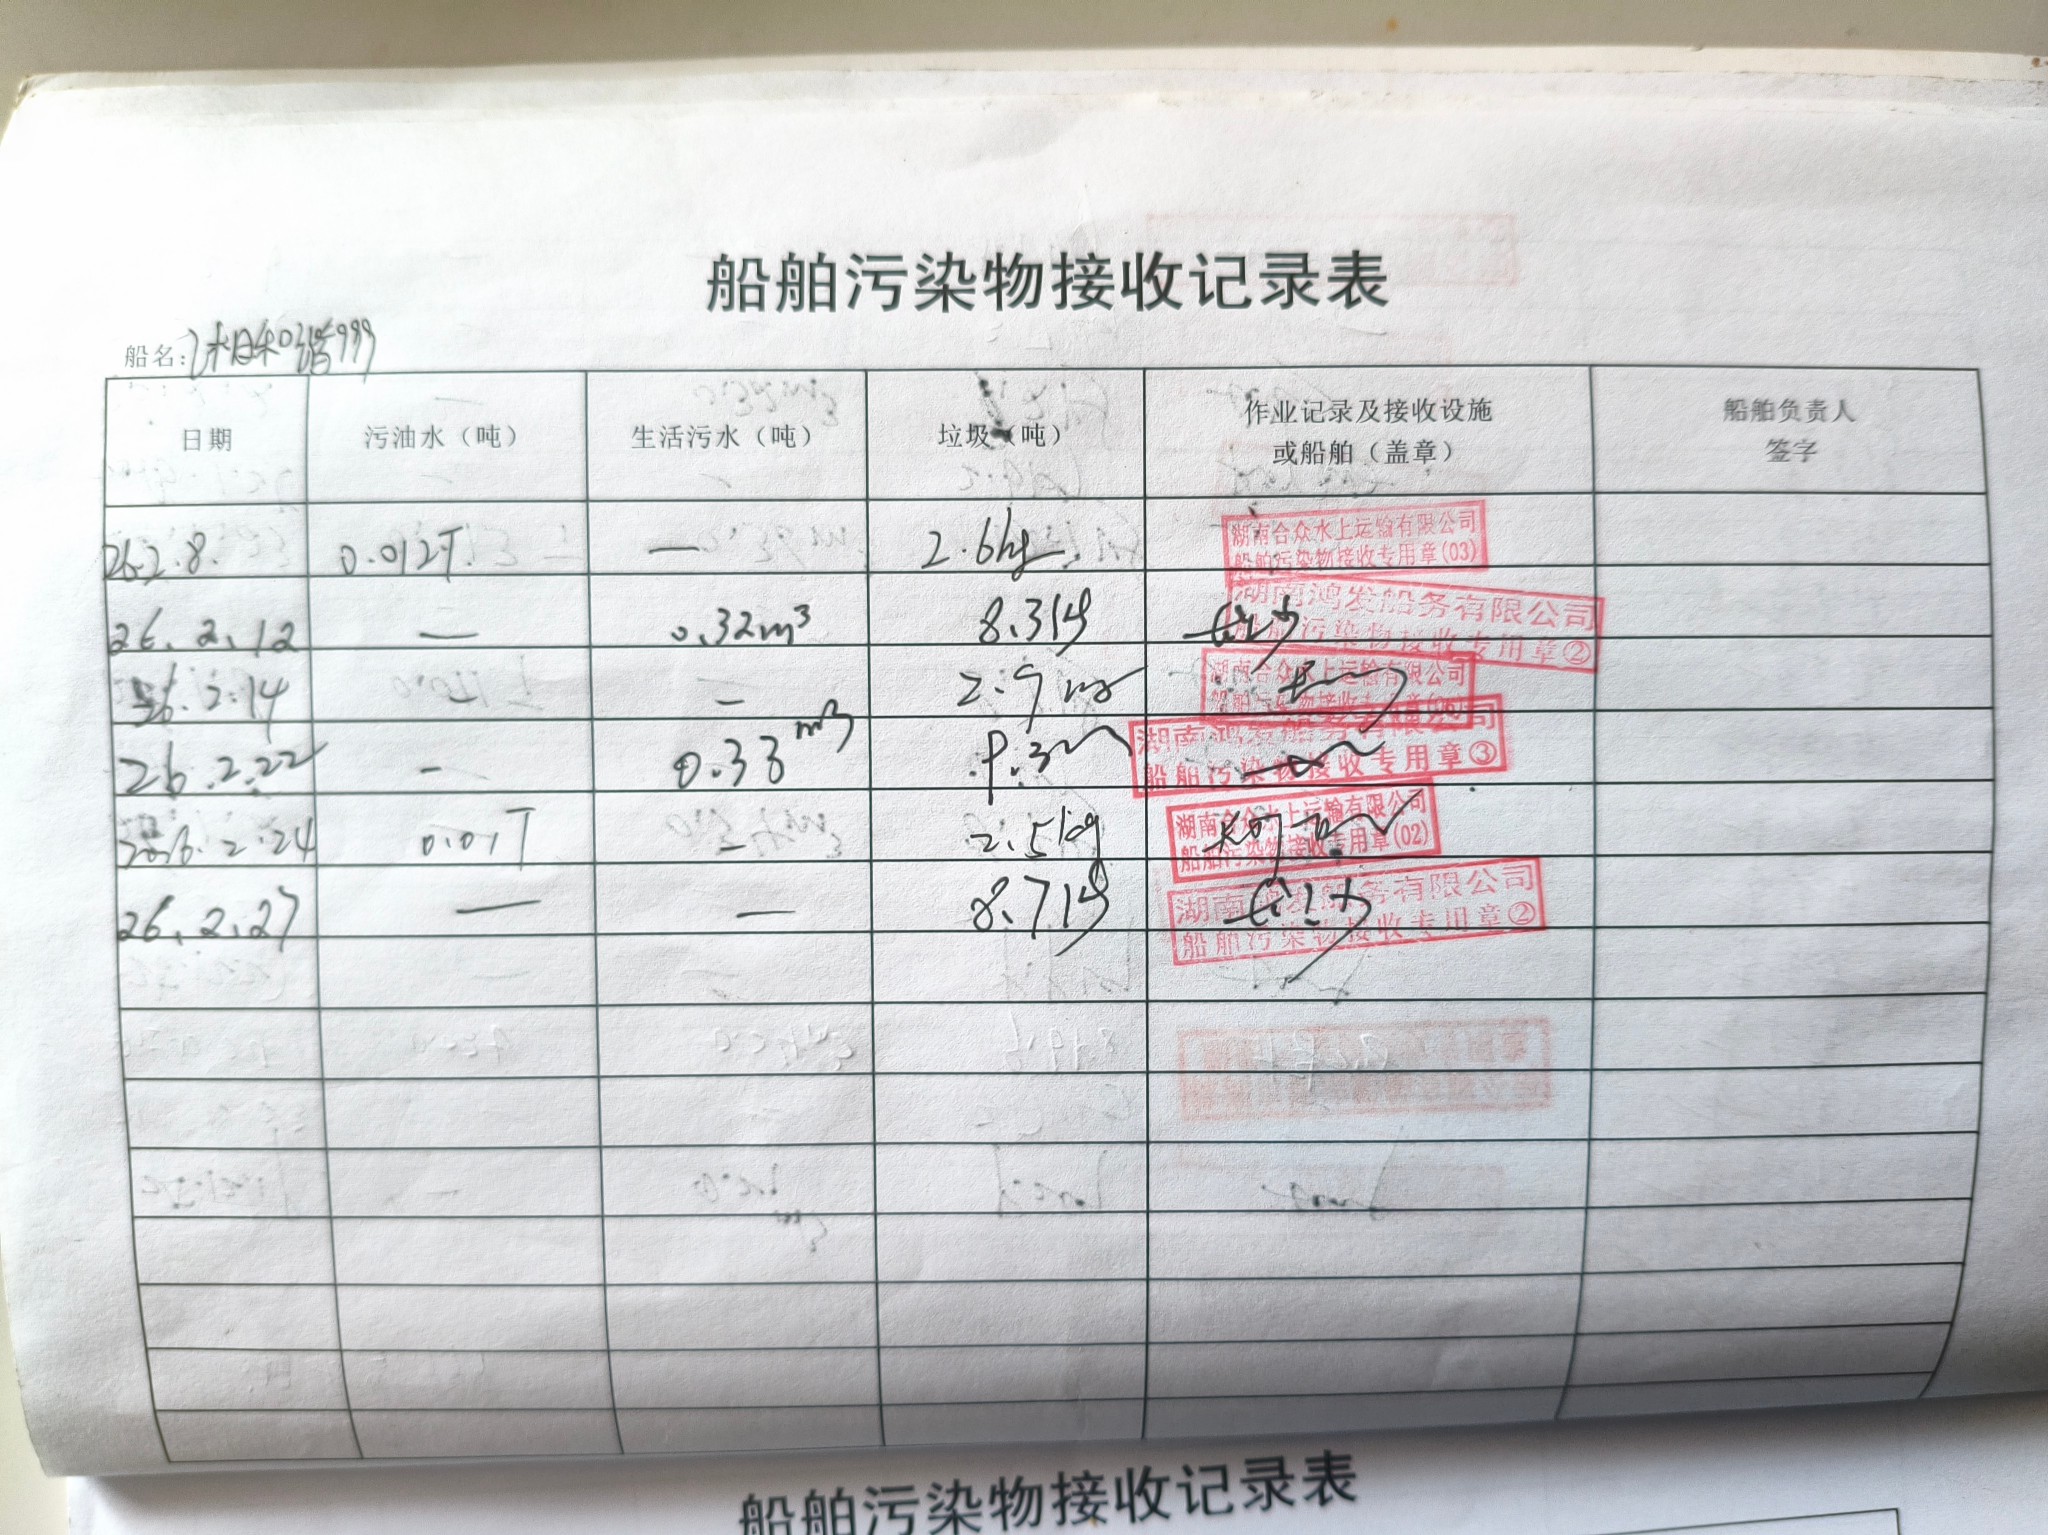 船舶污染物接收记录表
船名: 999
日期 污油水（吨） 生活污水（吨） 垃圾（吨） 作业记录及接收设施或船舶（盖章） 船舶负责人签字
26.2.8. 0.012T. — 2.6kg 湖南合众水上运输有限公司
船舶污染物接收专用章(03)
26.2.12 — 0.32m³ 8.3kg 湖南鸿发船务有限公司
船舶污染物接收专用章②
26.2.14 — — 2.9 湖南合众水上运输有限公司
船舶污染物接收专用章
26.2.22 — 0.33m³ 9.3 湖南鸿发船务有限公司
船舶污染物接收专用章③
2026.2.24 0.01T — 2.5kg 湖南合众水上运输有限公司
船舶污染物接收专用章(02)
26.2.27 — — 8.7kg 湖南鸿发船务有限公司
船舶污染物接收专用章②
船舶污染物接收记录表